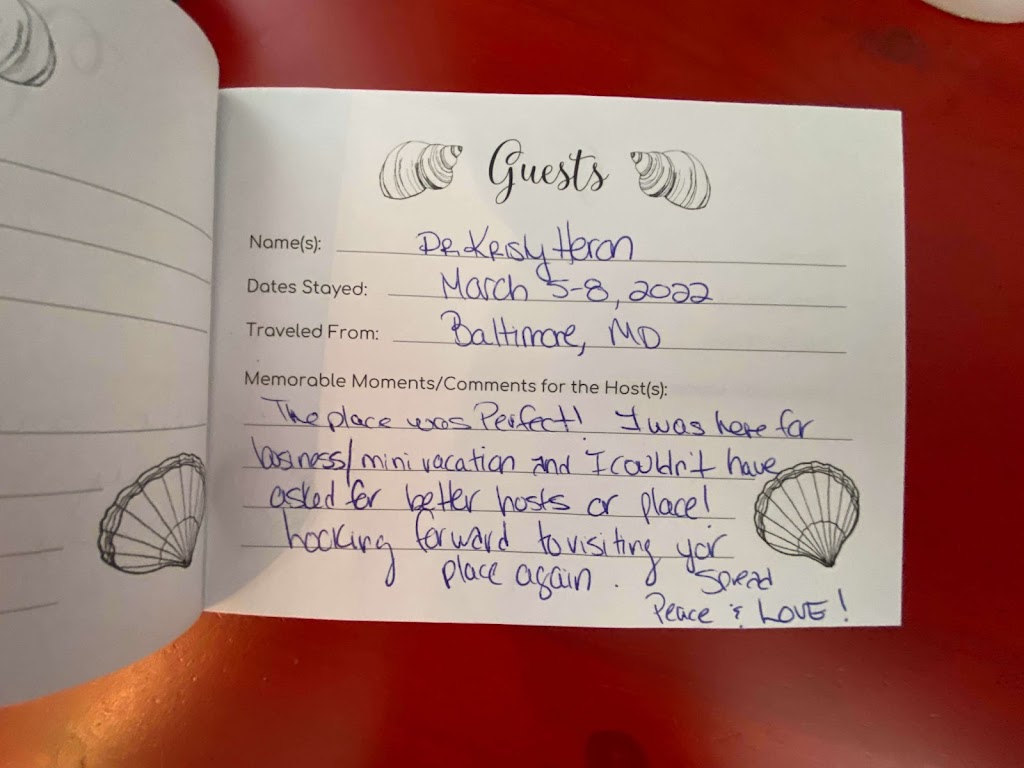 Guests
Name(s): Dr. Kristy Heron
Dates Stayed: March 5-8, 2022
Traveled From: Baltimore, MD
Memorable Moments/Comments for the Host(s):
The place was Perfect! I was here for
business/mini vacation and I couldn't have
asked for better hosts or place!
Looking forward to visiting your
place again. Spread
Peace & LOVE!